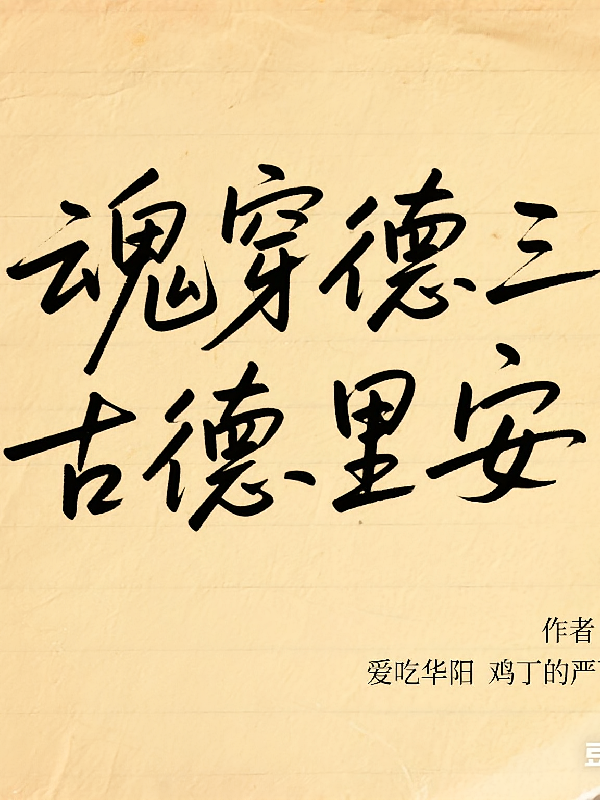 魂穿德三
古德里安
作者
爱吃华阳 鸡丁的严